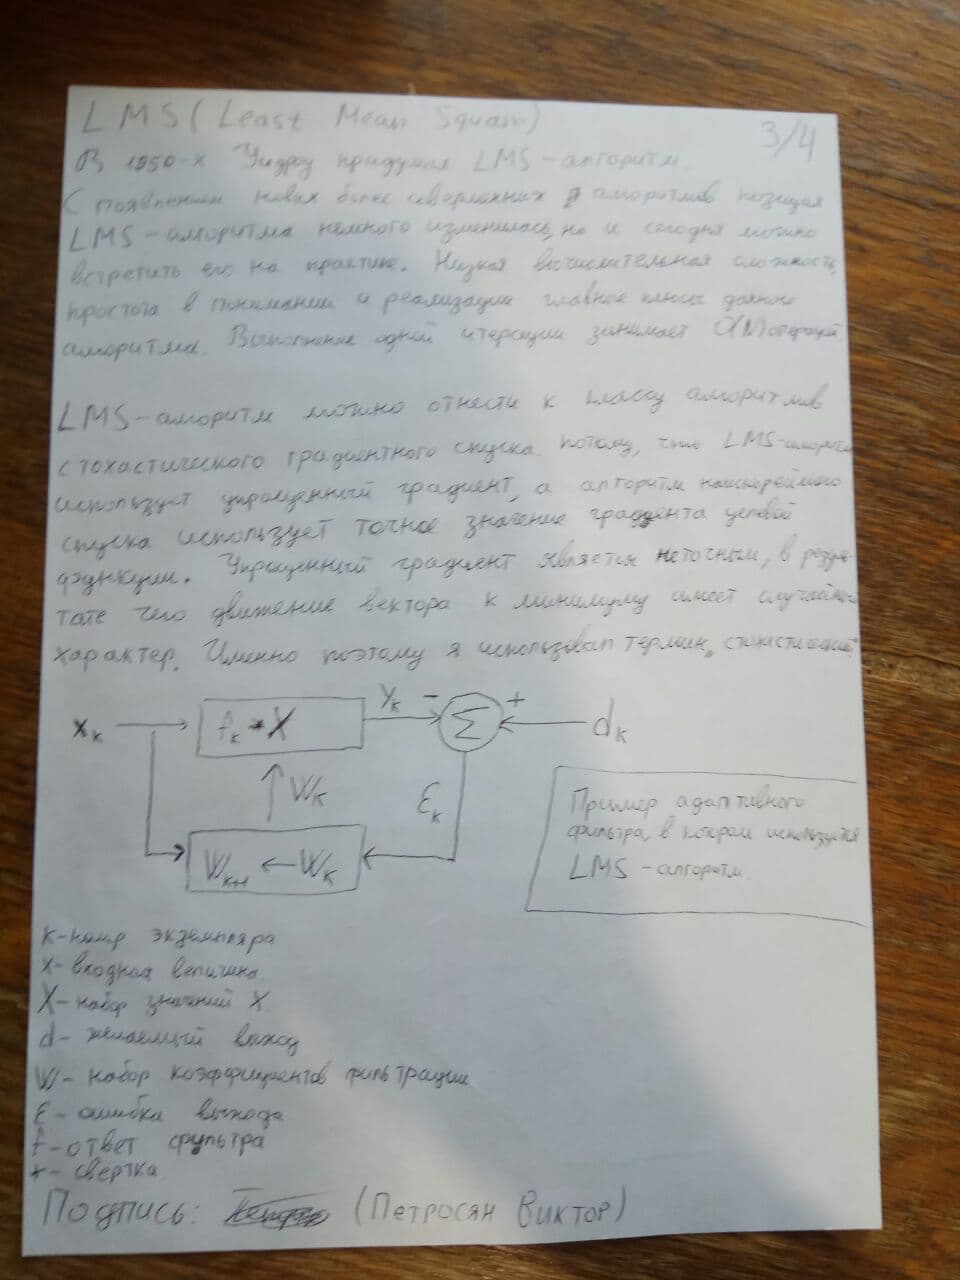 LMS (Least Mean Square)
3/4
В 1950-х Уидроу придумал LMS-алгоритм.
С появлением новых более совершенных алгоритмов позиция
LMS-алгоритма немного изменилась, но и сегодня можно
встретить его на практике. Низкая вычислительная сложность,
простота в понимании и реализации главные плюсы данного
алгоритма. Выполнение одной итерации занимает O(N) операций.
LMS-алгоритм можно отнести к классу алгоритмов
стохастического градиентного спуска. Потому, что LMS-алгоритм
использует упрощенный градиент, а алгоритм наискорейшего
спуска использует точное значение градиента целевой
функции. Упрощенный градиент является неточным, в резуль-
тате чего движение вектора к минимуму имеет случайный
характер. Именно поэтому я использовал термин "стохастический"
xₖ
fₖ * X
yₖ
−
Σ
+
dₖ
Wₖ
εₖ
Wₖ₊₁ ← Wₖ
Пример адаптивного
фильтра, в котором используется
LMS-алгоритм.
k - номер экземпляра
x - входная величина.
X - набор значений x.
d - желаемый выход
W - набор коэффициентов фильтрации
ε - ошибка выхода
f - ответ фильтра
* - свертка
Подпись: (Петросян Виктор)